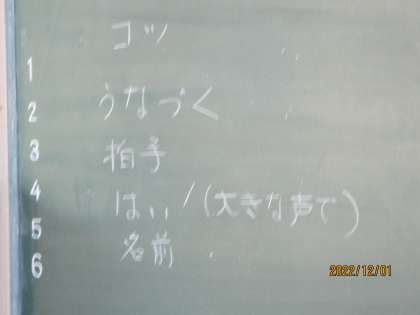 コツ
1
うなづく
2
3
拍手
4
はい!(大きな声で)
5
名前
6
2022/12/01